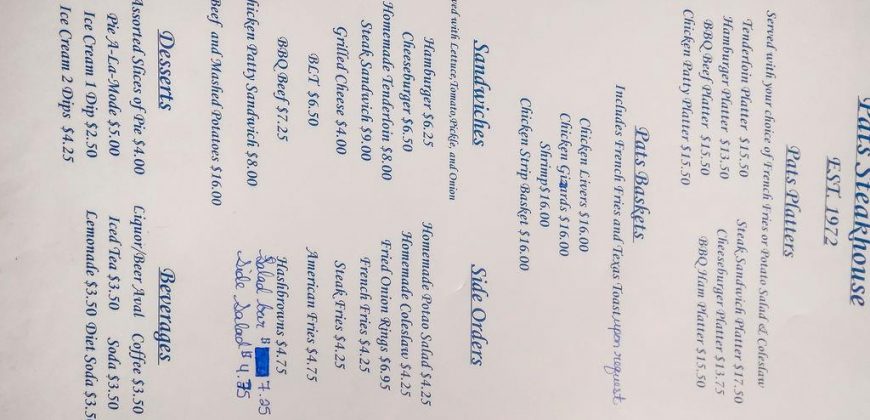 Pats Steakhouse
EST. 1972
Pats Platters
Served with your choice of French Fries or Potato Salad & Coleslaw
Tenderloin Platter $15.50
Steak Sandwich Platter $17.50
Hamburger Platter $13.50
Cheeseburger Platter $13.75
BBQ Beef Platter $15.50
BBQ Ham Platter $15.50
Chicken Patty Platter $15.50
Pats Baskets
Includes French Fries and Texas Toast upon request
Chicken Livers $16.00
Chicken Gizards $16.00
Shrimp $16.00
Chicken Strip Basket $16.00
Sandwiches
ved with Lettuce, Tomato, Pickle, and Onion
Hamburger $6.25
Cheeseburger $6.50
Homemade Tenderloin $8.00
Steak Sandwich $9.00
Grilled Cheese $4.00
BLT $6.50
BBQ Beef $7.25
hicken Patty Sandwich $8.00
Beef and Mashed Potatoes $16.00
Side Orders
Homemade Potao Salad $4.25
Homemade Coleslaw $4.25
Fried Onion Rings $6.95
French Fries $4.25
Steak Fries $4.25
American Fries $4.75
Hashbrowns $4.75
Salad bar $ 7.25
Side Salad $ 4.75
Desserts
Assorted Slices of Pie $4.00
Pie A-La-Mode $5.00
Ice Cream 1 Dip $2.50
Ice Cream 2 Dips $4.25
Beverages
Liquor/Beer Aval Coffee $3.50
Iced Tea $3.50 Soda $3.50
Lemonade $3.50 Diet Soda $3.5